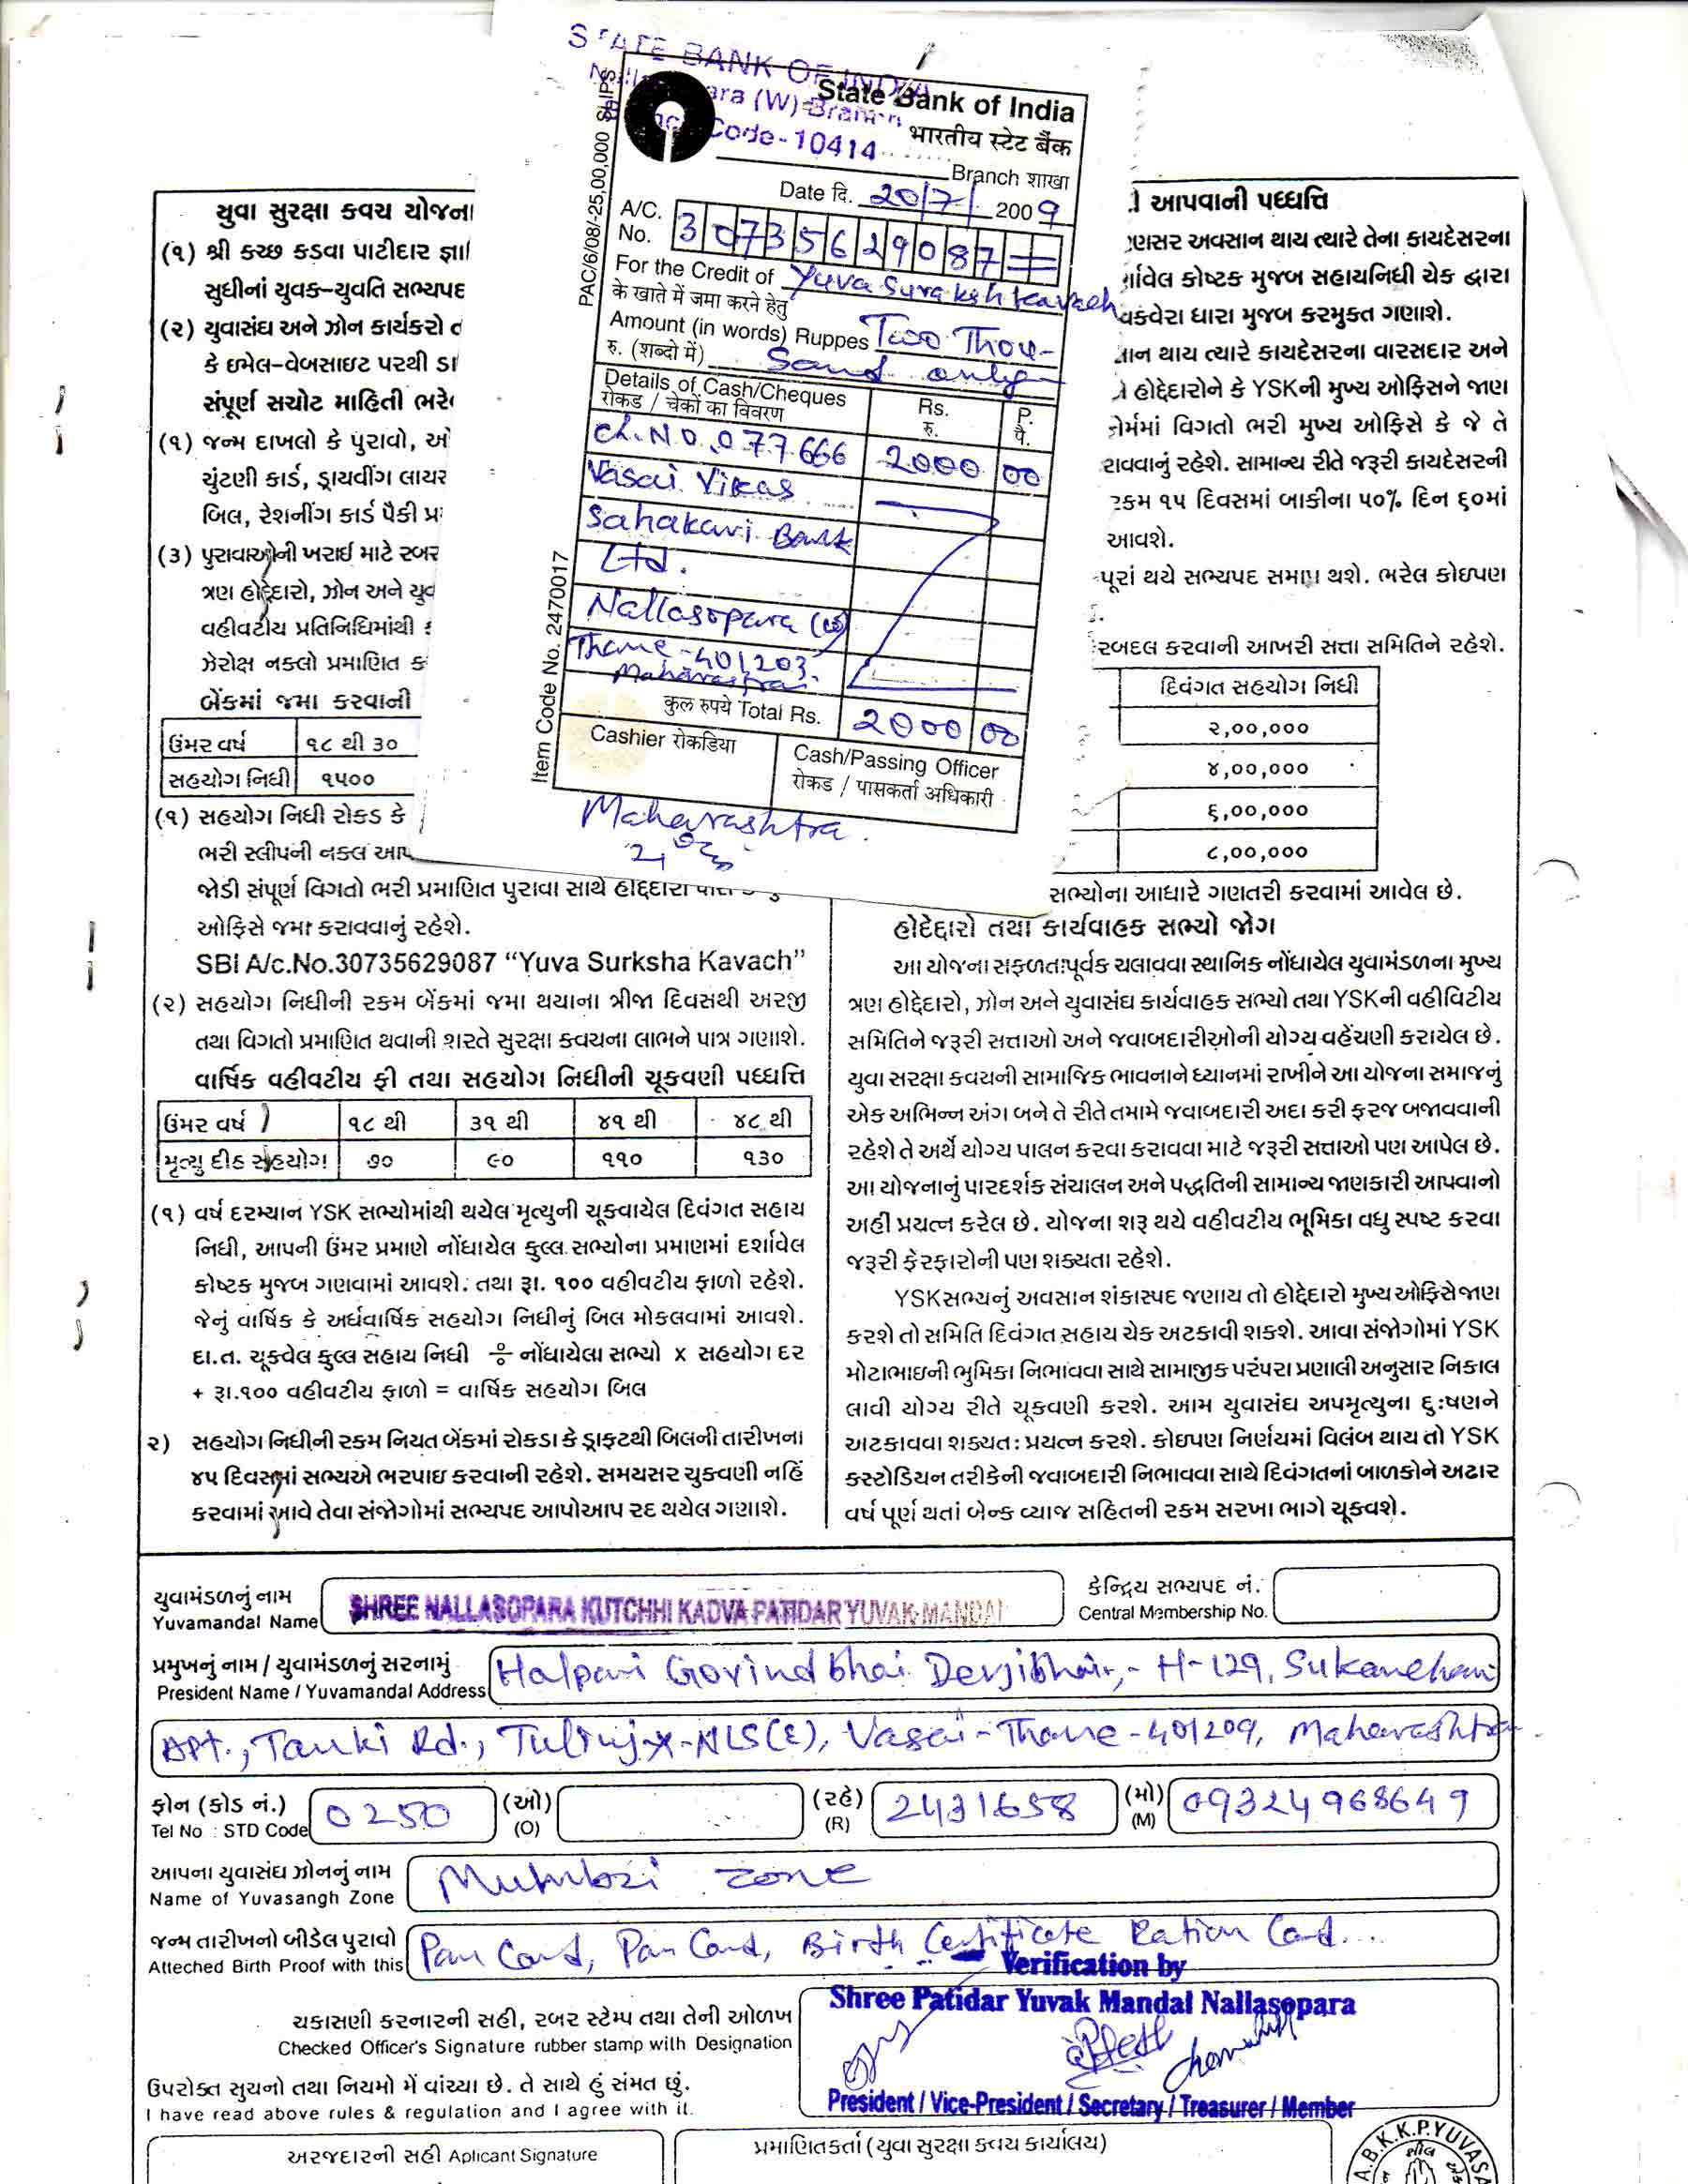 STATE BANK OF INDIA
ara (W) Branch
Code - 10414
State Bank of India
भारतीय स्टेट बैंक
Branch शाखा
Date दि. 20/7/ 2009
A/C. No. 30735629087
For the Credit of Yuva Suraksh Kavach
के खाते में जमा करने हेतु
Amount (in words) Ruppes Two Thou-
रु. (शब्दो में) Sand only
Details of Cash/Cheques Rs. P.
रोकड / चेकों का विवरण रु. पै.
Ch. No. 077666 2000 00
Vasai Vikas
Sahakari Bank
Ltd.
Nallasopara (w)
Thane-401203
Maharastra.
कुल रुपये Total Rs. 2000 00
Cashier रोकडिया
Cash/Passing Officer
रोकड / पासकर्ता अधिकारी
Maharashtra.
PAC/6/08/-25,00,000 SLIPS
Item Code No. 2470017
યુવા સુરક્ષા કવચ યોજના
(૧) શ્રી કચ્છ કડવા પાટીદાર
સુધીનાં યુવક-યુવતિ સભ્યપદ
(૨) યુવાસંઘ અને ઝોન કાર્યકરો
કે ઇમેલ-વેબસાઇટ પરથી
સંપૂર્ણ સચોટ માહિતી
(૧) જન્મ દાખલો કે પુરાવો,
ચુંટણી કાર્ડ, ડ્રાયવીંગ
બિલ, રેશનીંગ કાર્ડ પૈકી
(૩) પુરાવાઓની ખરાઈ માટે રબર
ત્રણ હોદ્દેદારો, ઝોન અને
વહીવટીય પ્રતિનિધિમાંથી
ઝેરોક્ષ નકલો પ્રમાણિત
બેંકમાં જમા કરવાની
ઉંમર વર્ષ ૧૮ થી ૩૦
સહયોગ નિધી ૧૫૦૦
(૧) સહયોગ નિધી રોકડ કે
ભરી સ્લીપની નકલ
જોડી સંપૂર્ણ વિગતો ભરી પ્રમાણિત પુરાવા સાથે
ઓફિસે જમા કરાવવાનું રહેશે.
SBI A/c.No.30735629087 “Yuva Surksha Kavach”
(૨) સહયોગ નિધીની રકમ બેંકમાં જમા થયાના ત્રીજા દિવસથી અરજી
તથા વિગતો પ્રમાણિત થવાની શરતે સુરક્ષા કવચના લાભને પાત્ર ગણાશે.
વાર્ષિક વહીવટીય ફી તથા સહયોગ નિધીની ચૂકવણી પધ્ધતિ
ઉંમર વર્ષ ૧૮ થી ૩૧ થી ૪૧ થી ૪૮ થી
મૃત્યુ દીઠ સહયોગ ૭૦ ૯૦ ૧૧૦ ૧૩૦
(૧) વર્ષ દરમ્યાન YSK સભ્યોમાંથી થયેલ મૃત્યુની ચૂકવાયેલ દિવંગત સહાય
નિધી, આપની ઉંમર પ્રમાણે નોંધાયેલ કુલ્લ સભ્યોના પ્રમાણમાં દર્શાવેલ
કોષ્ટક મુજબ ગણવામાં આવશે. તથા રૂા. ૧૦૦ વહીવટીય ફાળો રહેશે.
જેનું વાર્ષિક કે અર્ધવાર્ષિક સહયોગ નિધીનું બિલ મોકલવામાં આવશે.
દા.ત. ચૂકવેલ કુલ્લ સહાય નિધી ÷ નોંધાયેલા સભ્યો x સહયોગ દર
+ રૂા.૧૦૦ વહીવટીય ફાળો = વાર્ષિક સહયોગ બિલ
૨) સહયોગ નિધીની રકમ નિયત બેંકમાં રોકડા કે ડ્રાફટથી બિલની તારીખના
૪૫ દિવસમાં સભ્યએ ભરપાઇ કરવાની રહેશે. સમયસર ચુકવણી નહિં
કરવામાં આવે તેવા સંજોગોમાં સભ્યપદ આપોઆપ રદ થયેલ ગણાશે.
આપવાની પધ્ધતિ
અવસાન થાય ત્યારે તેના કાયદેસરના
કોષ્ટક મુજબ સહાયનિધી ચેક દ્વારા
ધારા મુજબ કરમુક્ત ગણાશે.
થાય ત્યારે કાયદેસરના વારસદાર અને
હોદ્દેદારોને કે YSKની મુખ્ય ઓફિસને જાણ
વિગતો ભરી મુખ્ય ઓફિસે કે જે તે
રહેશે. સામાન્ય રીતે જરૂરી કાયદેસરની
૧૫ દિવસમાં બાકીના ૫૦% દિન ૬૦માં
આવશે.
થયે સભ્યપદ સમાપ્ત થશે. ભરેલ કોઇપણ
કરવાની આખરી સત્તા સમિતિને રહેશે.
દિવંગત સહયોગ નિધી
૨,૦૦,૦૦૦
૪,૦૦,૦૦૦
૬,૦૦,૦૦૦
૮,૦૦,૦૦૦
સભ્યોના આધારે ગણતરી કરવામાં આવેલ છે.
હોદેદ્દારો તથા કાર્યવાહક સભ્યો જોગ
આ યોજના સફળતાપૂર્વક ચલાવવા સ્થાનિક નોંધાયેલ યુવામંડળના મુખ્ય
ત્રણ હોદ્દેદારો, ઝોન અને યુવાસંઘ કાર્યવાહક સભ્યો તથા YSKની વહીવિટીય
સમિતિને જરૂરી સત્તાઓ અને જવાબદારીઓની યોગ્ય વહેંચણી કરાયેલ છે.
યુવા સરક્ષા કવચની સામાજિક ભાવનાને ધ્યાનમાં રાખીને આ યોજના સમાજનું
એક અભિન્ન અંગ બને તે રીતે તમામે જવાબદારી અદા કરી ફરજ બજાવવાની
રહેશે તે અર્થે યોગ્ય પાલન કરવા કરાવવા માટે જરૂરી સત્તાઓ પણ આપેલ છે.
આ યોજનાનું પારદર્શક સંચાલન અને પદ્ધતિની સામાન્ય જાણકારી આપવાનો
અહીં પ્રયત્ન કરેલ છે. યોજના શરૂ થયે વહીવટીય ભૂમિકા વધુ સ્પષ્ટ કરવા
જરૂરી ફેરફારોની પણ શક્યતા રહેશે.
YSK સભ્યનું અવસાન શંકાસ્પદ જણાય તો હોદ્દેદારો મુખ્ય ઓફિસે જાણ
કરશે તો સમિતિ દિવંગત સહાય ચેક અટકાવી શકશે. આવા સંજોગોમાં YSK
મોટાભાઇની ભુમિકા નિભાવવા સાથે સામાજીક પરંપરા પ્રણાલી અનુસાર નિકાલ
લાવી યોગ્ય રીતે ચૂકવણી કરશે. આમ યુવાસંઘ અપમૃત્યુના દુઃષણને
અટકાવવા શક્યતઃ પ્રયત્ન કરશે. કોઇપણ નિર્ણયમાં વિલંબ થાય તો YSK
કસ્ટોડિયન તરીકેની જવાબદારી નિભાવવા સાથે દિવંગતનાં બાળકોને અઢાર
વર્ષ પૂર્ણ થતાં બેન્ક વ્યાજ સહિતની રકમ સરખા ભાગે ચૂકવશે.
યુવામંડળનું નામ
Yuvamandal Name SHREE NALLASOPARA KUTCHHI KADVA PATIDAR YUVAK MANDAL
કેન્દ્રિય સભ્યપદ નં.
Central Membership No.
પ્રમુખનું નામ / યુવામંડળનું સરનામું
President Name / Yuvamandal Address Halpani Govindbhai Devjibhai,- H-129, Sukanchan
Apt., Tanki Rd., Tulinj-NLS(E), Vasai-Thane-401209, Maharashtra
ફોન (કોડ નં.) (ઓ) (રહે) (મો)
Tel No : STD Code 0250 (O) (R) 2431658 (M) 09324968649
આપના યુવાસંઘ ઝોનનું નામ
Name of Yuvasangh Zone Mumbai zone
જન્મ તારીખનો બીડેલ પુરાવો
Atteched Birth Proof with this Pan Card, Pan Card, Birth Certificate Ration Card...
Verification by
Shree Patidar Yuvak Mandal Nallasopara
ચકાસણી કરનારની સહી, રબર સ્ટેમ્પ તથા તેની ઓળખ
Checked Officer's Signature rubber stamp with Designation
President / Vice-President / Secretary / Treasurer / Member
ઉપરોક્ત સુચનો તથા નિયમો મેં વાંચ્યા છે. તે સાથે હું સંમત છું.
I have read above rules & regulation and I agree with it.
અરજદારની સહી Aplicant Signature
પ્રમાણિતકર્તા (યુવા સુરક્ષા કવચ કાર્યાલય)
A.B.K.K.P.YUVASA